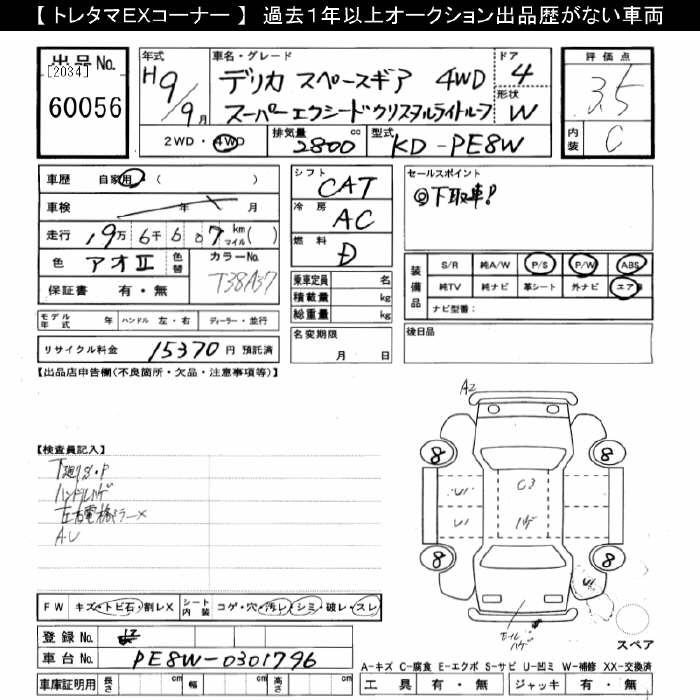 【 トレタマEXコーナー 】 過去1年以上オークション出品歴がない車両
出品No.
[2034]
60056
年式
H9/9月
車名・グレード
デリカ スペースギア 4WD
スーパーエクシードクリスタルライトルーフ
ドア
4
形状
W
評価点
3.5
内装
C
2WD・4WD
排気量
2800 cc
型式
KD-PE8W
車歴 自家用 ( )
車検 年 月
走行 19万6千607 km マイル ( )
色 アオII 色替
カラーNo.
T38A37
保証書 有・無
モデル年式 年 ハンドル 左・右 ディーラー・並行
リサイクル料金 15370 円 預託済
シフト
CAT
冷房
AC
燃料
D
乗車定員 名
積載量 kg
総重量 kg
名変期限
月 日
セールスポイント
◎下取車!
装備品
S/R 純A/W P/S P/W ABS
純TV 純ナビ 革シート 外ナビ エアB
ナビ型番:
後日品
【出品店申告欄(不良箇所・欠品・注意事項等)】
【検査員記入】
T廻りS・P
ハンドルハゲ
左右電格ミラー×
AU
A2
8
8
8
8
U1
U1
C3
ハゲ
U1
ホイルハゲ
スペア
FW キズ・トビ石・割レX
シート内装 コゲ・穴・汚レ・シミ・破レ・スレ
登録No.
車台No. PE8W-0301796
車庫証明用 長さ cm 幅 cm 高さ cm
A-キズ C-腐食 E-エクボ S-サビ U-凹ミ W-補修 XX-交換済
工具 有・無 ジャッキ 有・無